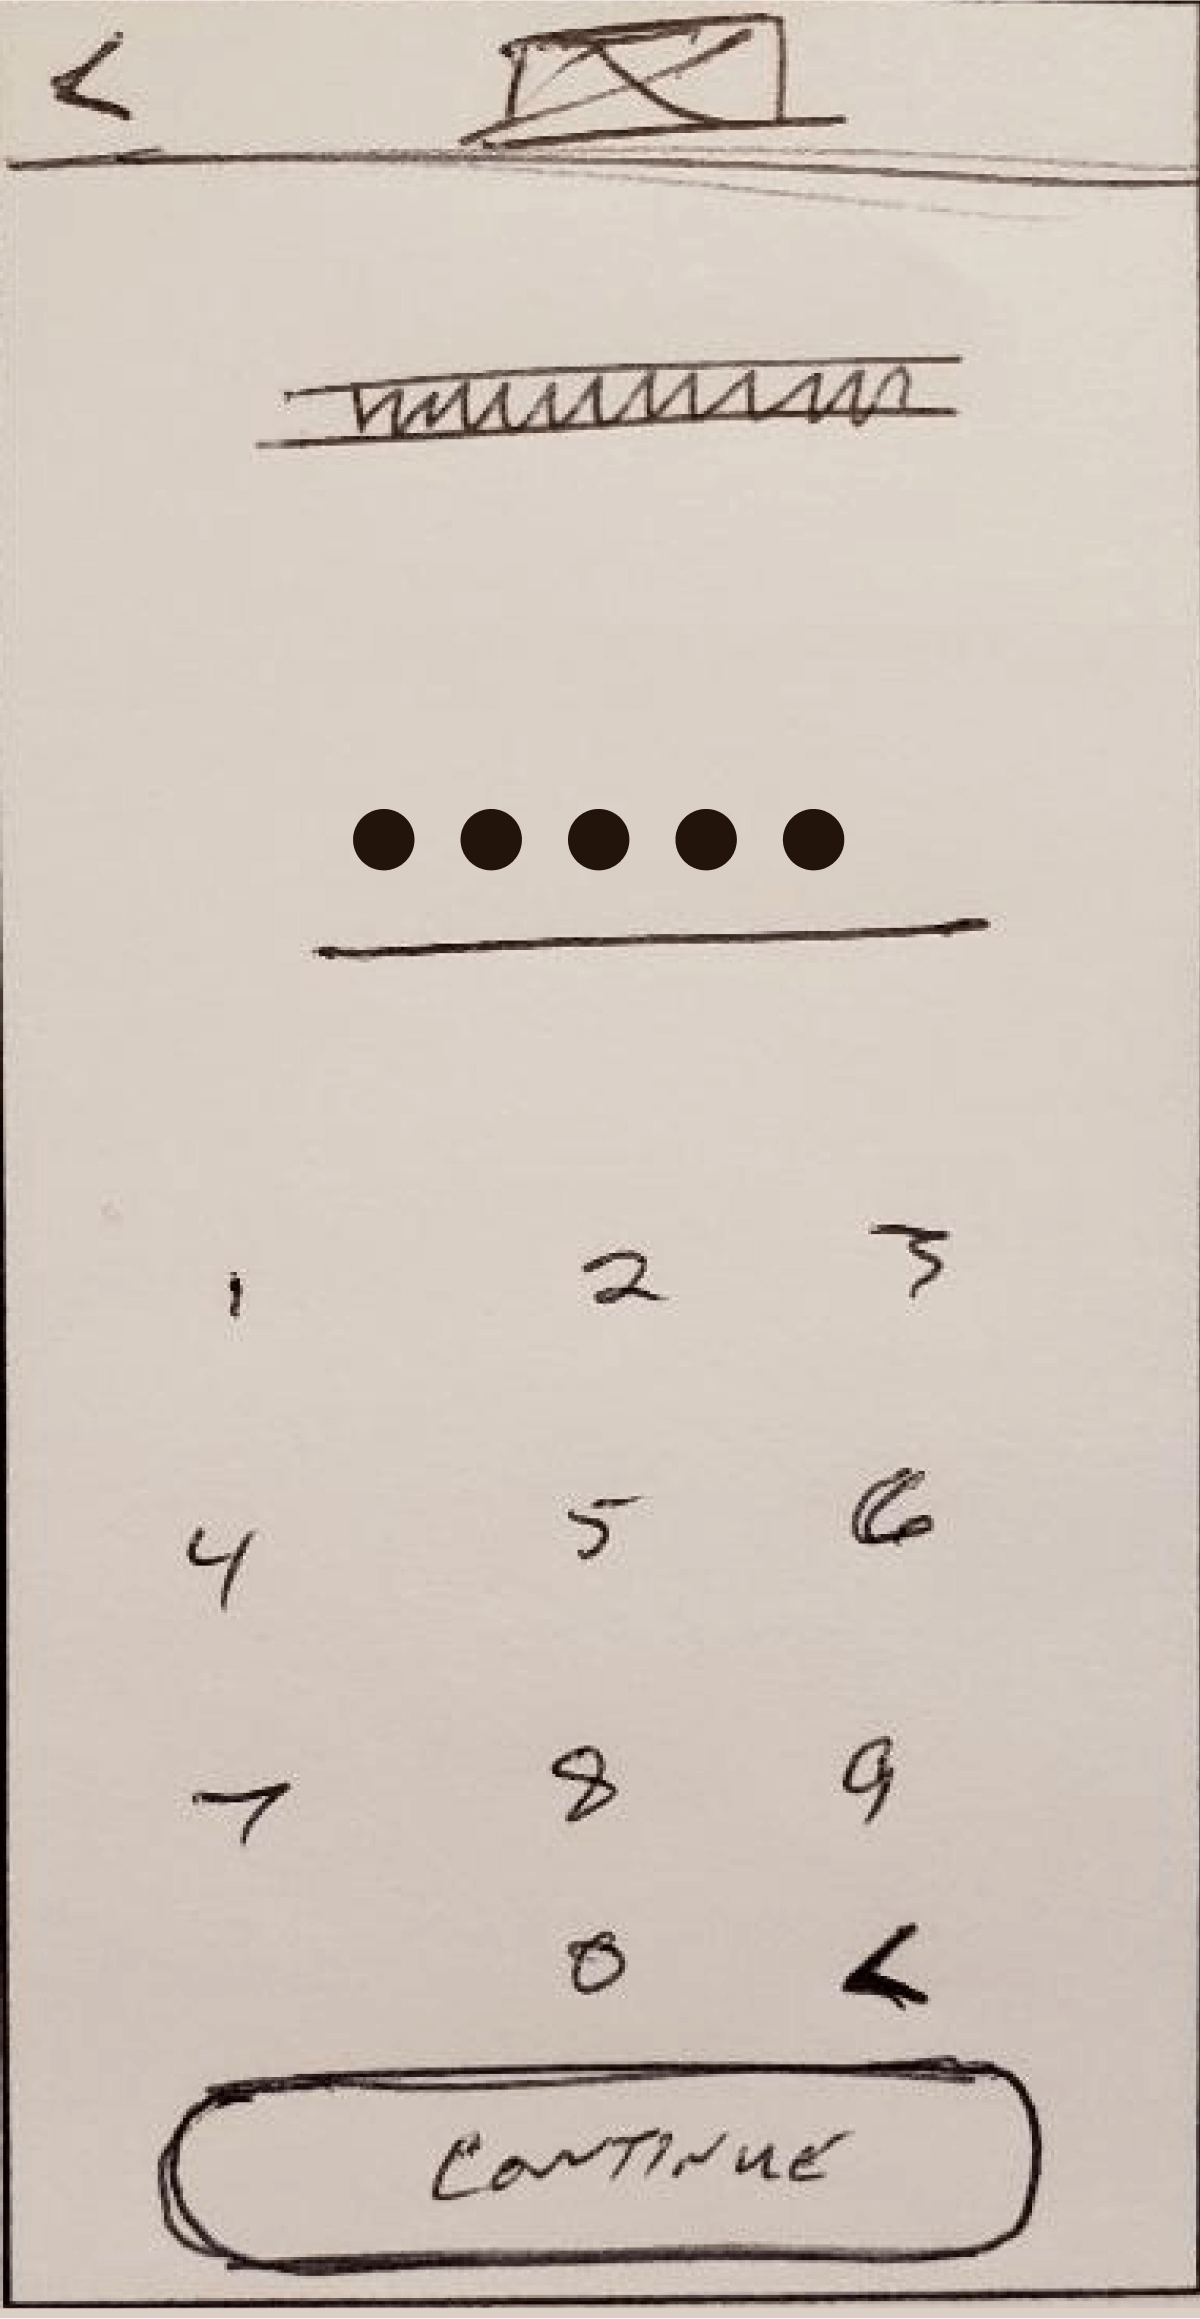 <
1 2 3
4 5 6
7 8 9
0 <
CONTINUE